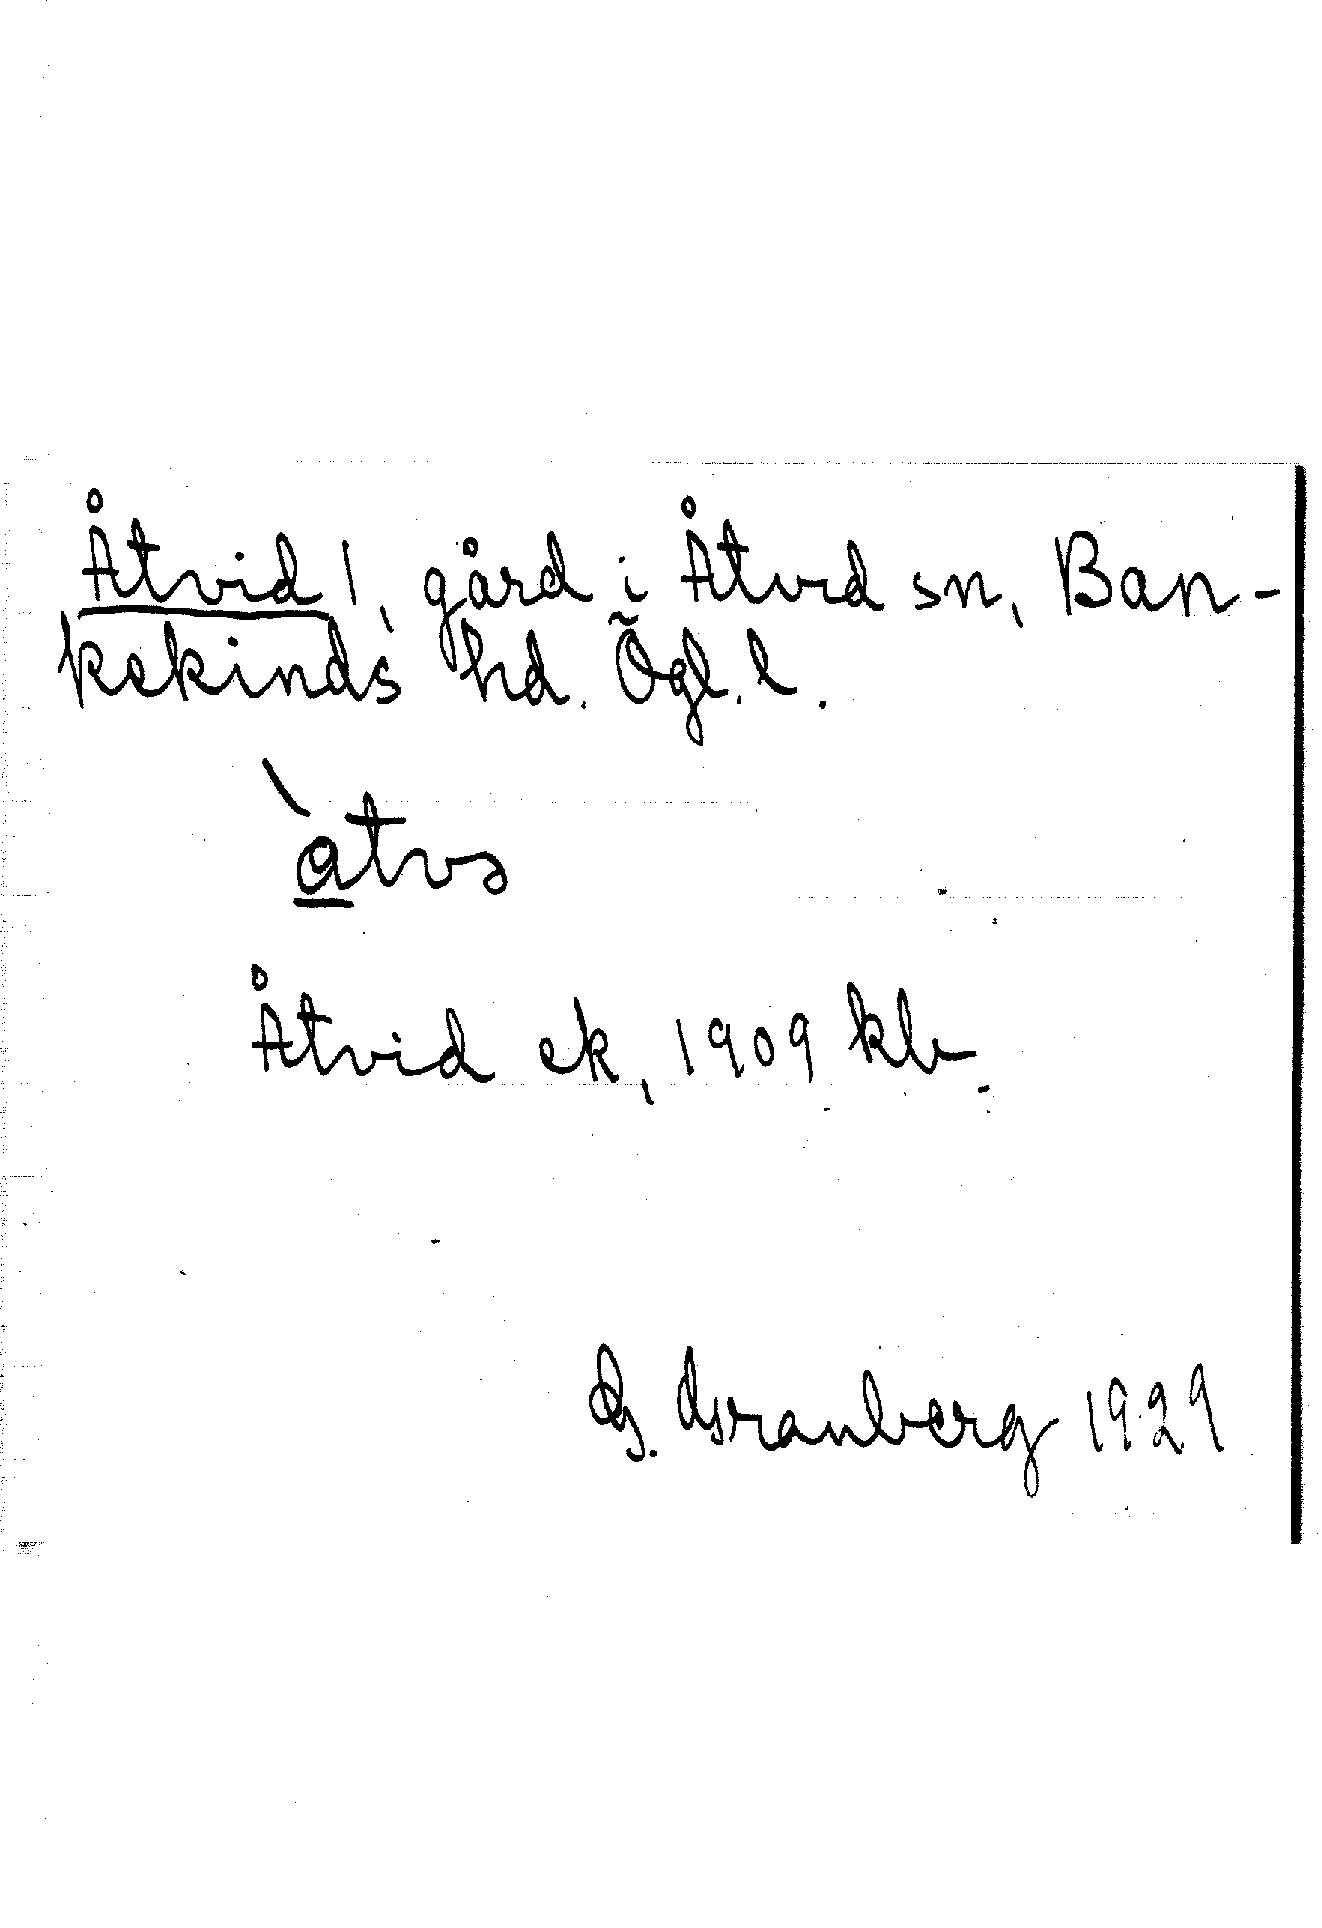 Åtvid 1, gård i Åtvid sn, Ban-
kekinds hd. Ögl. l.
Åtvid ek, 1909 kb.
G. Granberg 1929